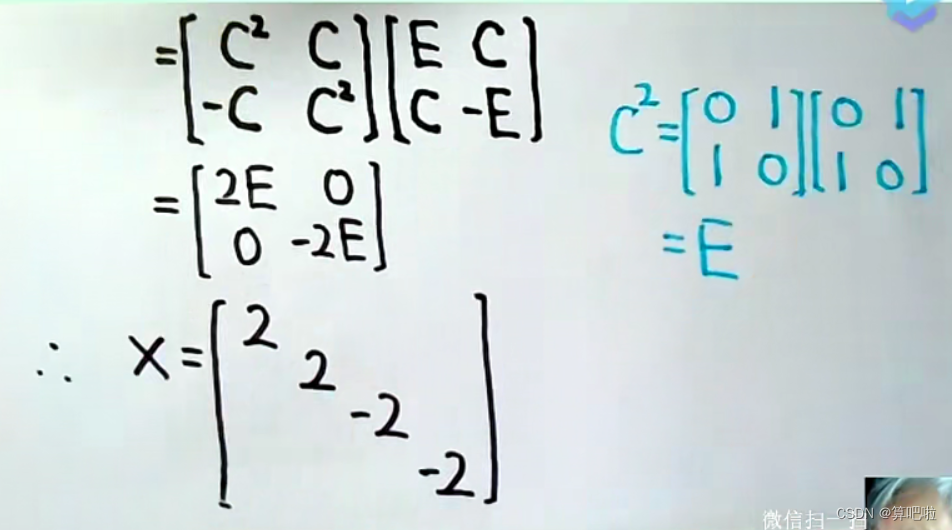 = [ C² C ] [ E C ]
[ -C C² ] [ C -E ]
= [ 2E 0 ]
[ 0 -2E ]
∴ X = [ 2
2
-2
-2 ]
C² = [ 0 1 ] [ 0 1 ]
[ 1 0 ] [ 1 0 ]
= E
微信扫一扫
CSDN @算吧啦